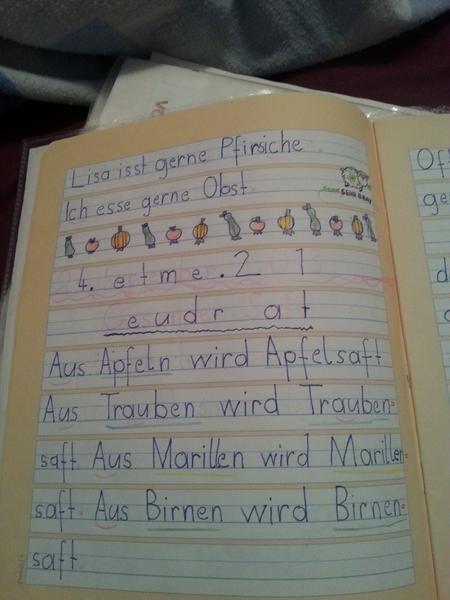 Lisa isst gerne Pfirsiche
Ich esse gerne Obst.
SEHR BRAV
4. e t m e . 2 1
e u d r a t
Aus Äpfeln wird Apfelsaft
Aus Trauben wird Trauben=
saft. Aus Marillen wird Marillen=
saft. Aus Birnen wird Birnen=
saft.
Of
ge